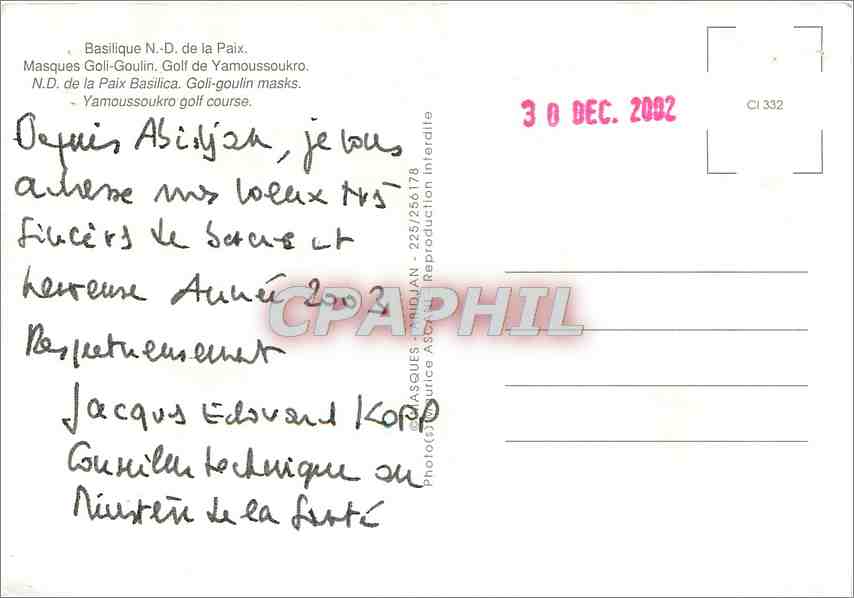 Basilique N.-D. de la Paix.
Masques Goli-Goulin. Golf de Yamoussoukro.
N.D. de la Paix Basilica. Goli-goulin masks.
Yamoussoukro golf course.
Depuis Abidjan, je vous
adresse mes voeux très
sincères de bonne et
heureuse Année 2003
Respectueusement
Jacques Edouard KOPP
Conseiller technique au
Ministère de la Santé
© MASQUES - ABIDJAN - 225/256178
Photo(s) Maurice ASCANI - Reproduction interdite
30 DEC. 2002
CI 332
CPAPHIL